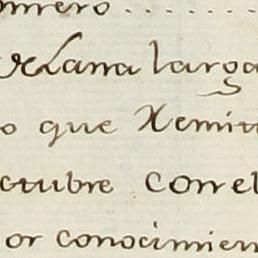 omrero . . . . . . .
de Lana larga
o que Remit
ctubre con el
or conocimien